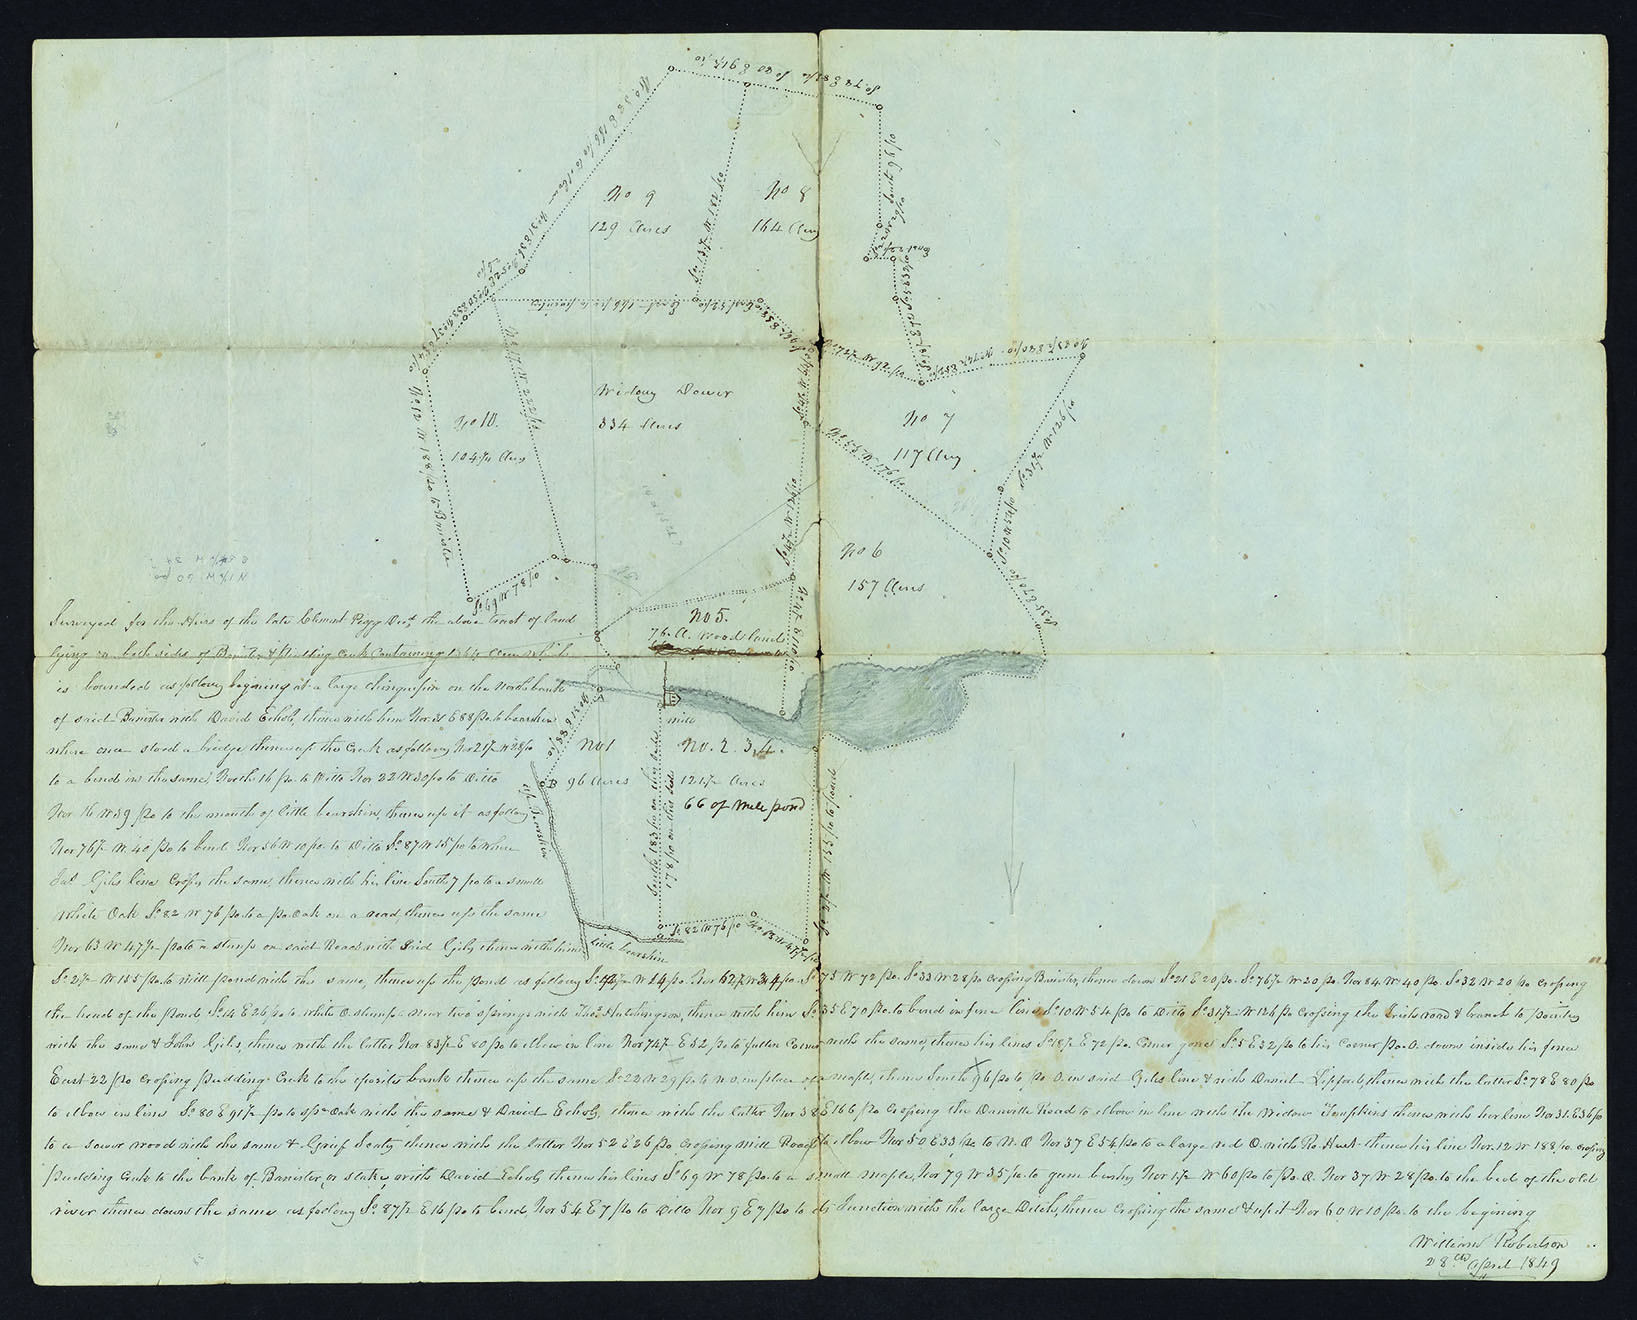 So 80 E 91½ po
So 78 E 80 po
No 38 E 166 po to elbow
No 31 E 36 po
South 96 po
So 22 W 29 po
East 22 po
No 9
129 Acres
So 13½ W 182 po
No 8
164 Acres
East 32 po
So 5 E 32 po
So 18½ E 72 po
No 12 W 188 po to Banister
No 17 W 222 po
No 10.
104¾ Acres
Widows Dower
334 Acres
No 72½ W 92 po
No 74½ E 52 po
No 83½ E 80 po
No 7
117 Acres
So 31½ W 126 po
No 55 W 176 po
So 10 W 54 po
So 35 E 70 po
So 4½ W 126 po
No 6
157 Acres
So 69 W 78 po
No 5.
76 A. Wood land
Mill
No 31 E 88 po
No 1
96 Acres
B
up Bearskin
No. 2. 3. 4.
121½ Acres
66 of Mill pond
South 183 po on this side
178 po on this side
So 2½ W 155 po to pond
So 82 W 76 po
No 63 W 47½ po
Little bearskin
Surveyed for the Heirs of the late Clement Decd. the above tract of land
lying on both sides of Banister & Pudding Creek Containing Acres which
is bounded as follows begining at a large chinquepin on the North bank
of said Banister with David Echols, thence with him Nor. 31 E 88 po. to bearskin
where once stood a bridge thence up the Creek as follows Nor 21½ W 28 po
to a bend in the same, North 16 po to Ditto Nor 22 W 30 po to Ditto
Nor 16 W 39 po to the mouth of little bearskin, thence up it as follows
Nor 76½ W. 40 po to bend Nor 56 W 10 po to Ditto So. 87 W 15 po to where
Jas. Giles line Crosses the same, thence with his line South 7 po to a small
White Oak So. 82 W 76 po to a po. oak on a road, thence up the same
Nor 63 W 47½ po to a stump on said Road with Said Giles thence with him
So. 2½ W 155 po. to mill pond with the same, thence up the Pond as follows So. W 24 po. Nor 62½ W 34 po. So. 75 W 72 po. So. 33 W 28 po Crossing Banister, thence down So. 21 E 20 po. So. 76½ W 20 po. Nor 84 W. 40 po. So. 32 W 20 po Crossing
the head of the pond So. 14 E 26 po to white O. stump near two springs with Thos. Hutchingson, thence with him So. 35 E 70 po. to bend in fence line So. 10 W 54 po to Ditto So. 31½ W 126 po Crossing the Irish road & branch to pointers
with the same & John Giles, thence with the latter Nor 83½ E 80 po to elbow in line Nor 74½ E 52 po to fallen Corner with the same, thence his lines So. 18½ E 72 po. Corner gone So. 5 E 32 po to his Corner po. O. down inside his fence
East 22 po Crossing pudding Creek to the oposite bank thence up the same So. 22 W 29 po to w. o. in place of a maple, thence South 96 po to po O. in said Giles line & with Daniel Lipford, thence with the latter So. 78 E 80 po
to elbow in line So. 80 E 91½ po to spa. Oak with the same & David Echols, thence with the latter Nor 38 E 166 po Crossing the Danville Road to elbow in line with the Widow Tompkins thence with her line Nor 31 E 36 po
to a sower wood with the same & Grief thence with the latter Nor 52 E 26 po Crossing mill Road to elbow Nor 50 E 33 po to R. O. Nor 37 E 54 po to a large red O. with Ro. Hurt thence his line Nor. 12 W 188 po. Crossing
Pudding Creek to the bank of Banister, or stake, with David Echols thence his lines So. 69 W 78 po. to a small maple, Nor 79 W 35 po. to gum bushes Nor 1½ W 60 po to po. O. Nor 37 W 28 po. to the bed of the old
river thence down the same as follows So. 87½ E 16 po to bend, Nor 54 E 7 po to Ditto Nor 9 E 7 po to its Junction with the large Ditch, thence Crossing the same & up it Nor 60 W 10 po. to the begining
William Robertson
28th April 1849